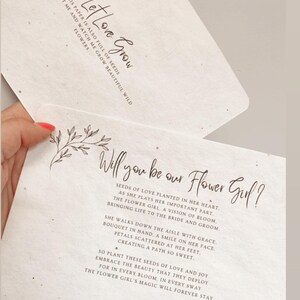 Let Love Grow
THIS PAPER IS ALSO FULL OF SEEDS
ME AND WATCH ME GROW BEAUTIFUL WILD
FLOWERS
Will you be our Flower Girl?
SEEDS OF LOVE PLANTED IN HER HEART
AS SHE PLAYS HER IMPORTANT PART
THE FLOWER GIRL, A VISION OF BLOOM,
BRINGING LIFE TO THE BRIDE AND GROOM.
SHE WALKS DOWN THE AISLE WITH GRACE,
BOUQUET IN HAND, A SMILE ON HER FACE.
PETALS SCATTERED AT HER FEET,
CREATING A PATH SO SWEET.
SO PLANT THESE SEEDS OF LOVE AND JOY
EMBRACE THE BEAUTY THAT THEY DEPLOY
FOR IN EVERY BLOOM, IN EVERY DAY
THE FLOWER GIRL'S MAGIC WILL FOREVER STAY